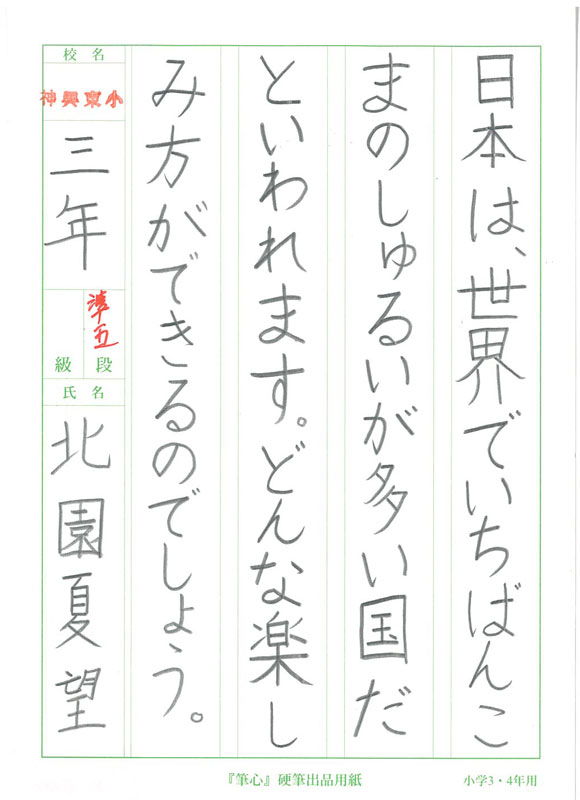 日本は、世界でいちばんこ
まのしゅるいが多い国だ
といわれます。どんな楽し
み方ができるのでしょう。
校名
神興東小
三年
準五
段
級
氏名
北園夏望
『筆心』硬筆出品用紙
小学3・4年用